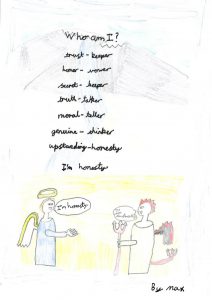 Who am I?
trust - keeper
secret - keeper
truth - talker
moral - teller
genuine - thinker
upstanding - honesty
I'm honesty
I'm honesty
By max